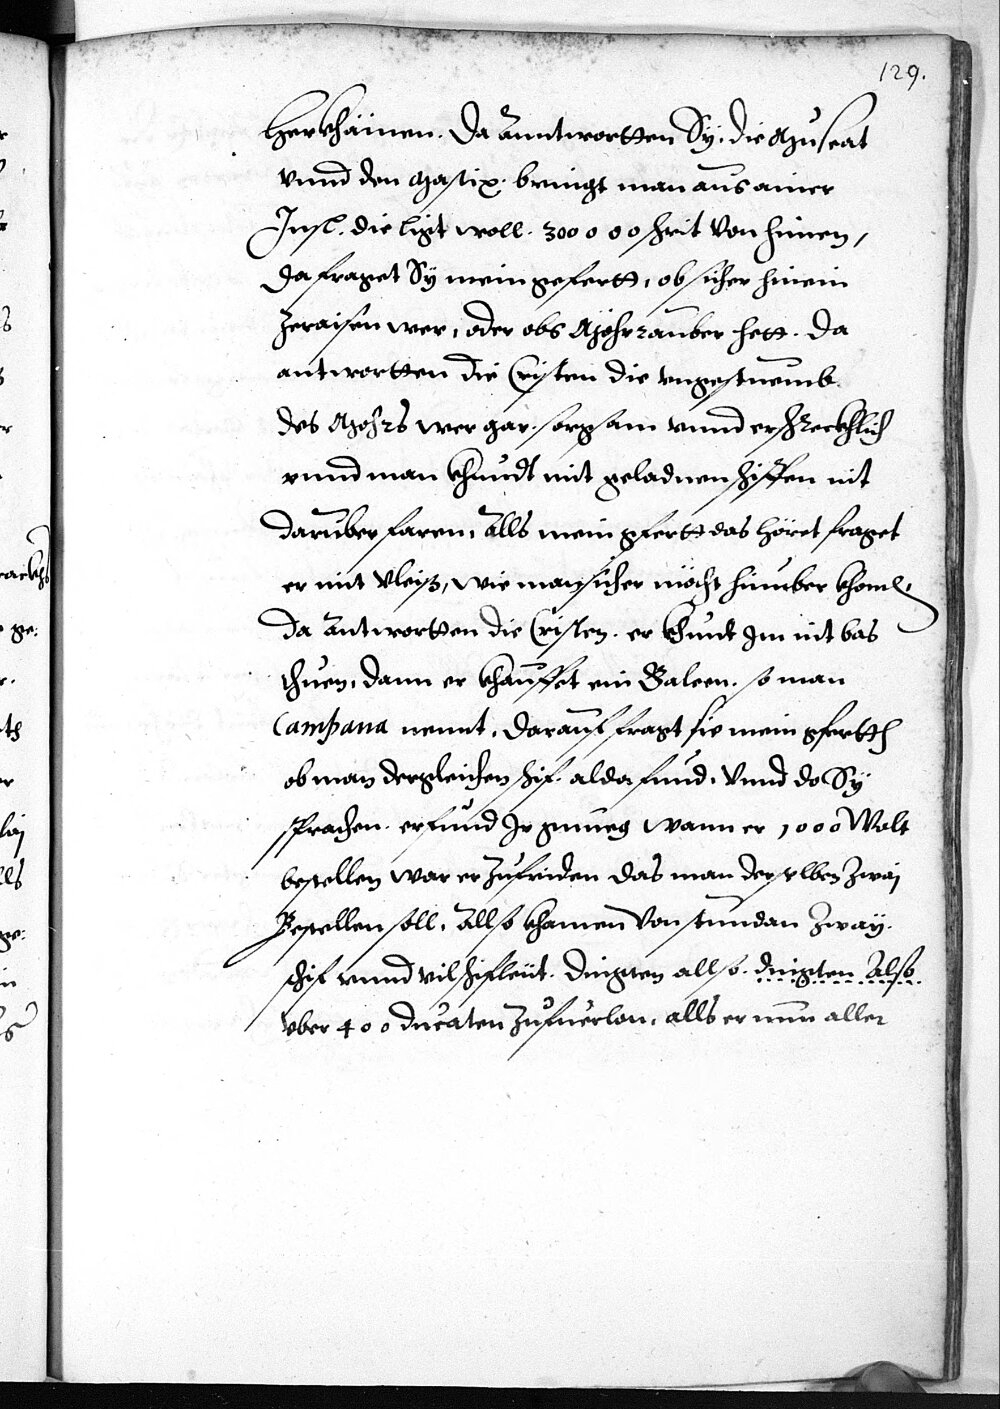 129.
herkhäinen. Da Anntwortten Sÿ, die Muscat
vnnd den Mastix. bringt man aus ainer
Insl. die ligt woll. 300000 schrit von hinnen,
Da fraget Sÿ mein gefertt, ob sicher hinein
zeraisen wer, oder obs Möhrrauber hett. Da
antwortten die Cristen die vngestuemb
des Mohrs wer gar sorgsam vnnd erschreckhlich
vnnd man khundt mit geladnen schiffen nit
daruber faren, Alls mein gfertt das höret fraget
er mit vleiß, wie man sicher möcht hinuber khomen,
Da Antwortten die Cristen. er khundt Im nit bas
thuen, dann er khauffet ein Galeen. so man
Campana nennt, Darauf fragt sie mein gfertth
ob man dergleichen schif. alda fund, Vnnd do Sÿ
sprachen. er fund Ir gnueg wann er 1000 Wolt
bestellen war er zufriden das man derselben zwaj
Bestellen soll, Allso khamen von stundan zwaÿ.
schif vnnd vil schifleüt. Dingten allso. dingten Also
vber 400 ducaten zufuerlon, alls er nun aller